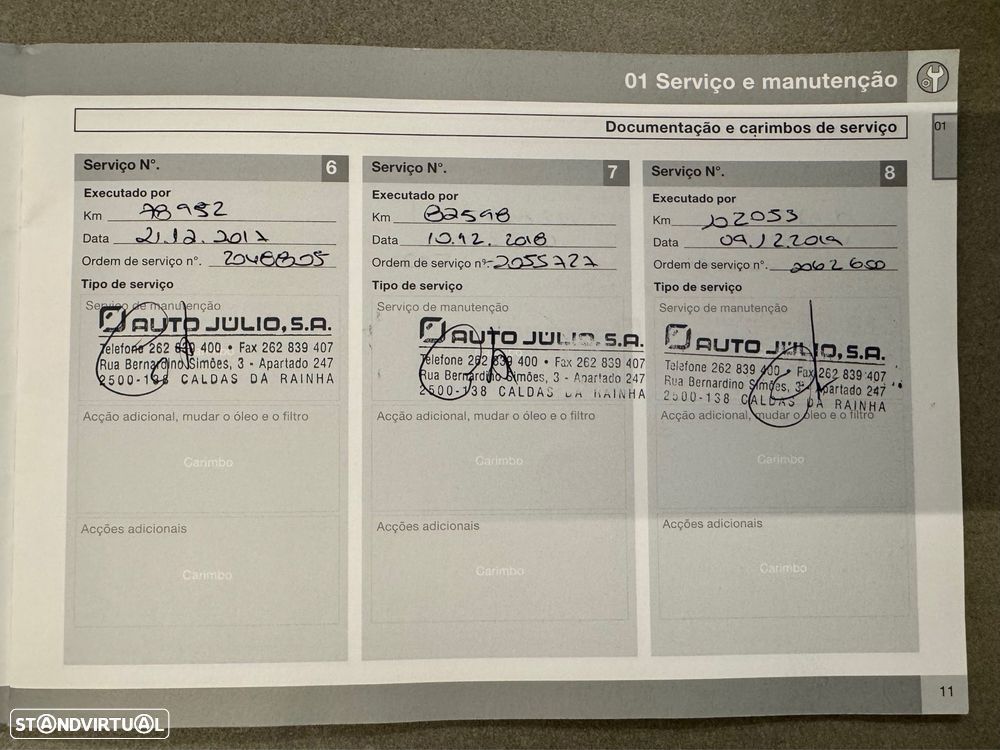 01 Serviço e manutenção
01
Documentação e carimbos de serviço
Serviço N°. 6
Executado por
Km 78952
Data 21.12.2017
Ordem de serviço n°. 2048805
Tipo de serviço
Serviço de manutenção
AUTO JÚLIO, S.A.
Telefone 262 839 400 • Fax 262 839 407
Rua Bernardino Simões, 3 - Apartado 247
2500-138 CALDAS DA RAINHA
Acção adicional, mudar o óleo e o filtro
Carimbo
Acções adicionais
Carimbo
Serviço N°. 7
Executado por
Km 82598
Data 10.12.2018
Ordem de serviço n°. 2055727
Tipo de serviço
Serviço de manutenção
AUTO JÚLIO, S.A.
Telefone 262 839 400 • Fax 262 839 407
Rua Bernardino Simões, 3 - Apartado 247
2500-138 CALDAS DA RAINHA
Acção adicional, mudar o óleo e o filtro
Carimbo
Acções adicionais
Carimbo
Serviço N°. 8
Executado por
Km 102053
Data 09.12.2019
Ordem de serviço n°. 2062600
Tipo de serviço
Serviço de manutenção
AUTO JÚLIO, S.A.
Telefone 262 839 400 • Fax 262 839 407
Rua Bernardino Simões, 3 - Apartado 247
2500-138 CALDAS DA RAINHA
Acção adicional, mudar o óleo e o filtro
Carimbo
Acções adicionais
Carimbo
11
STANDVIRTUAL